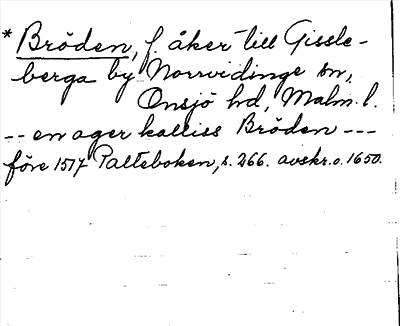 * Bröden, f. åker till Gissle-
berga by Norrvidinge sn,
Onsjö hd, Malm. l.
-- en ager kalliss Bröden ---
före 1517 Palteboken, s. 266. avskr. o. 1650.